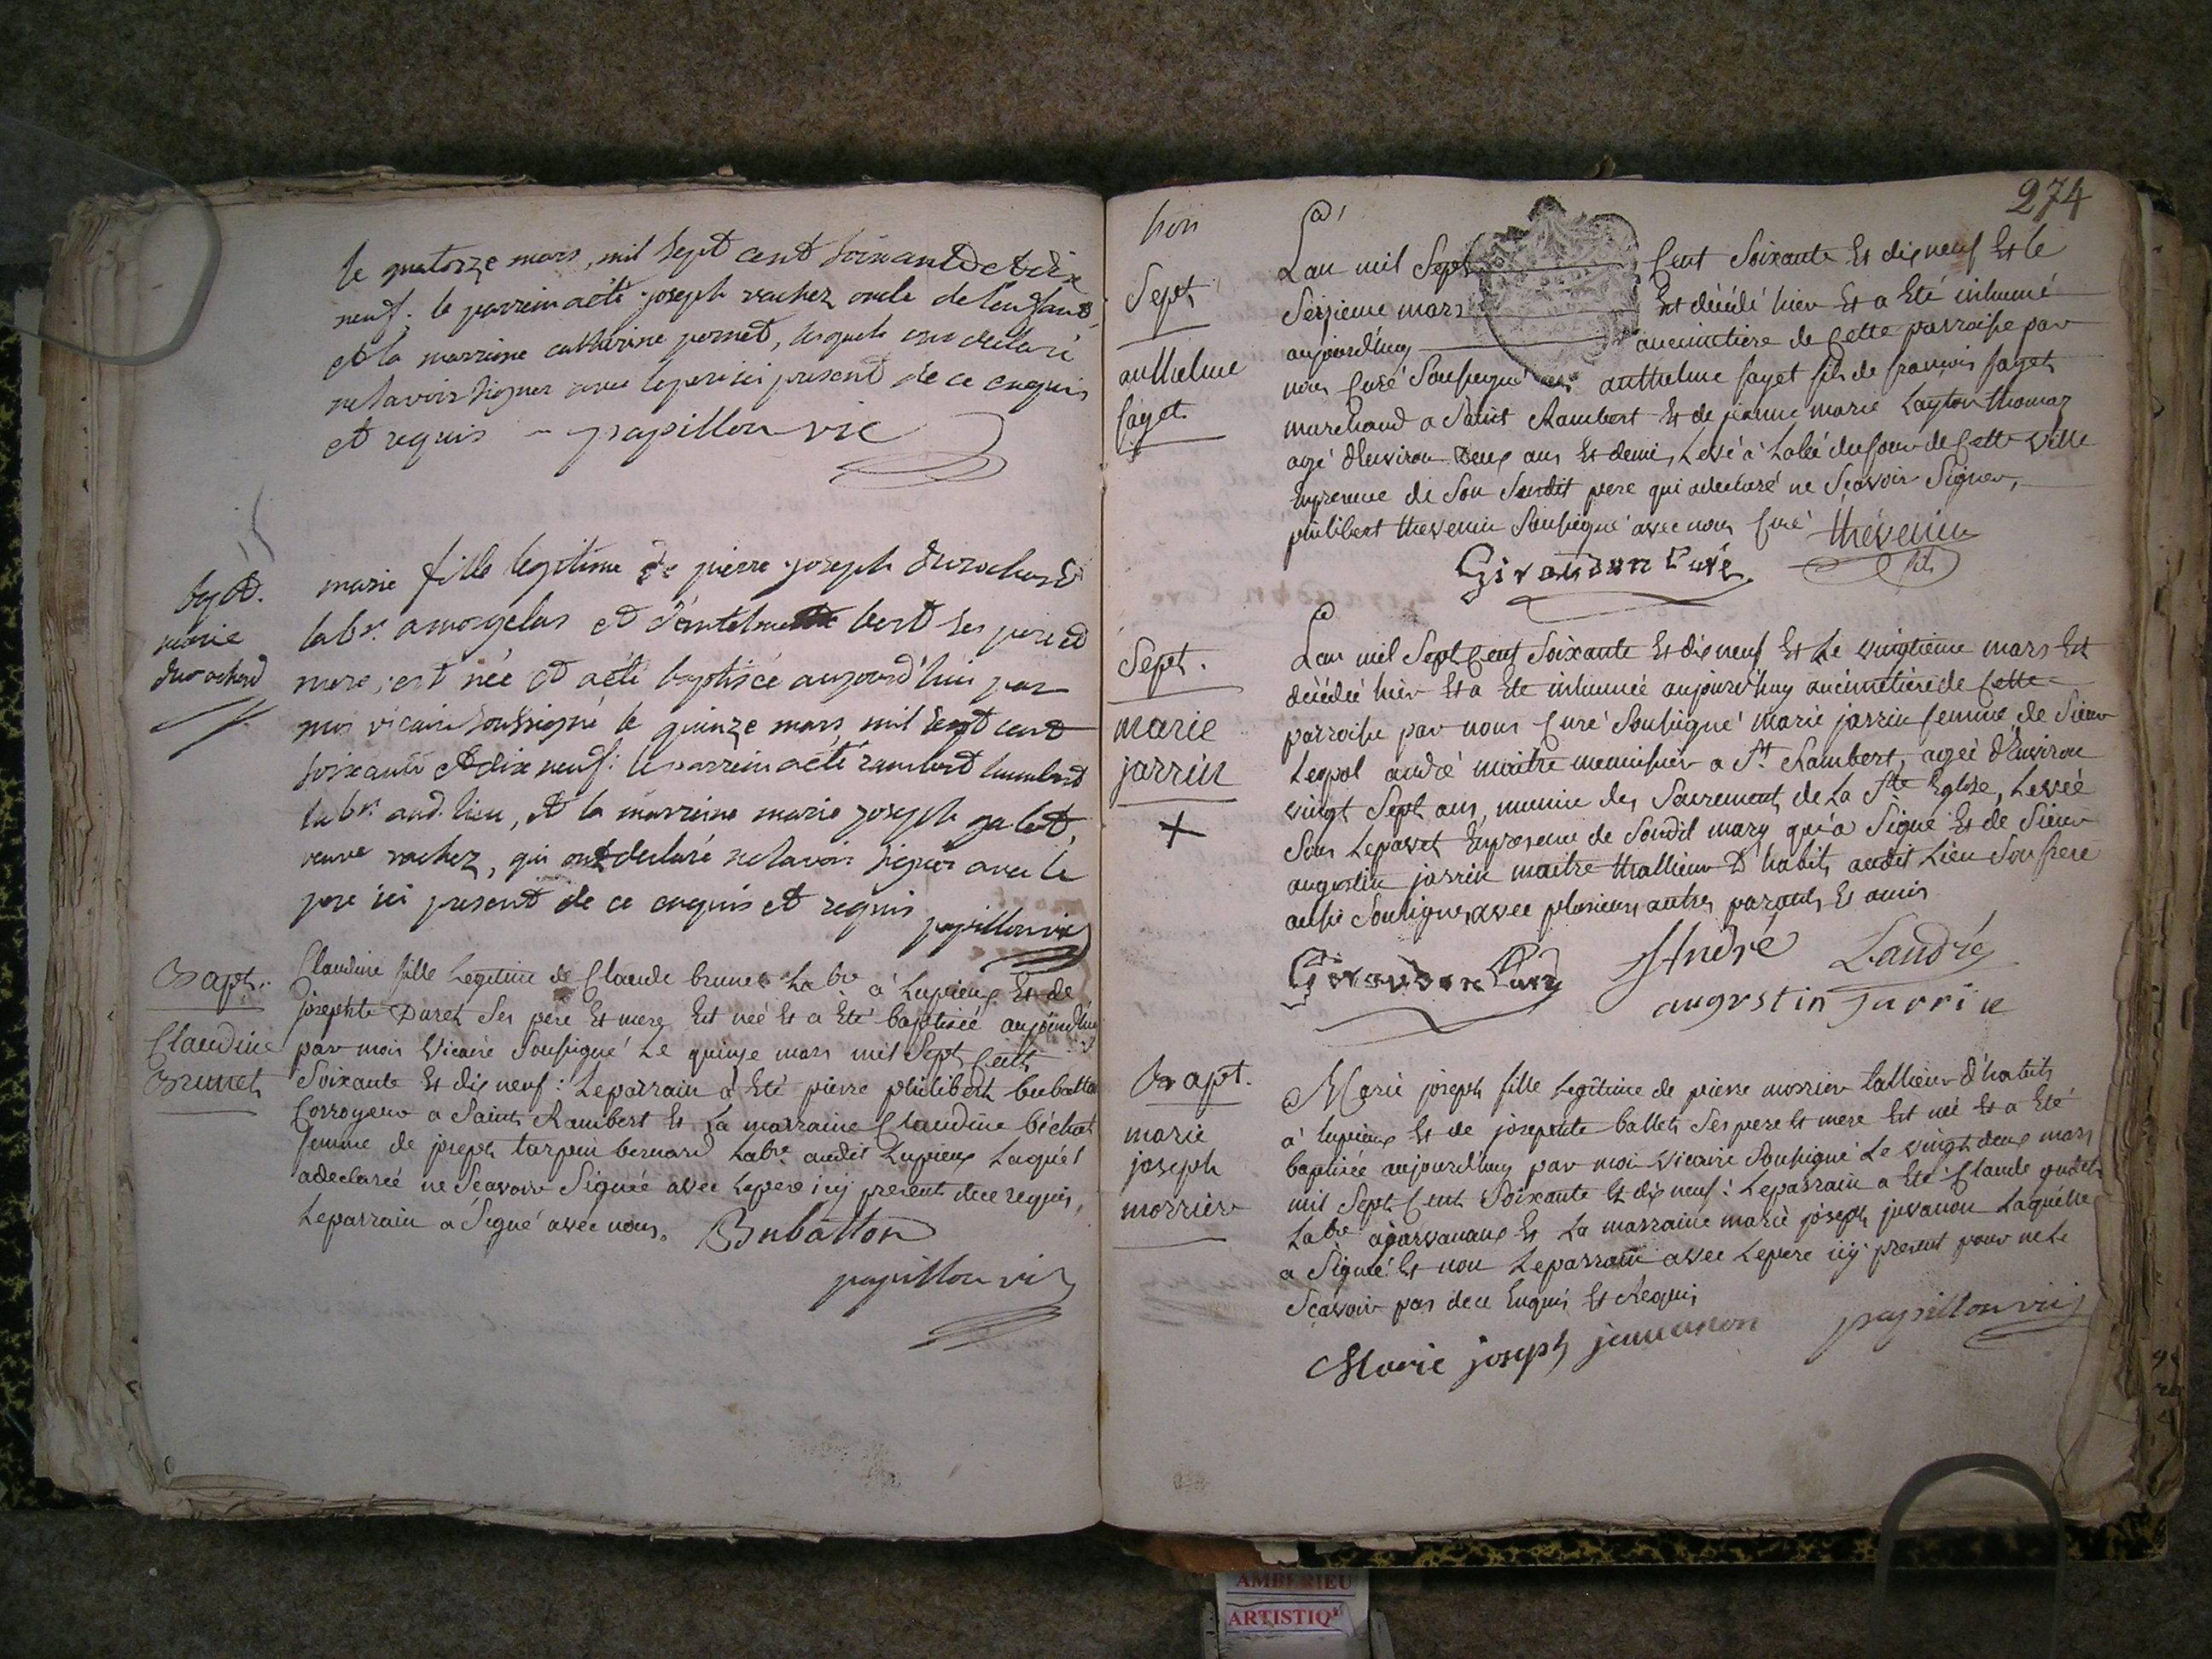 le quatorze mars, mil sept cent soixante et dix
neuf; le parrein a été joseph vachez oncle de l'enfant,
et la marreine catherine pernet, lesquels ont declaré
ne savoir signer avec le pere ici present de ce enquis
et requis - papillon vic
bapt.
marie
durochard
marie fille legitime de pierre joseph durochard
labr. a morgelas et d'antelmette bert ses pere et
mere, est née et a été baptisée aujourd'hui par
moi vicaire soussigné le quinze mars mil sept cent
soixante et dix neuf: le parrein a été rambert humbert
labr. aud. lieu, et la marreine marie joseph galet,
veuve vachez, qui ont declaré ne savoir signer avec le
pere ici present de ce enquis et requis
papillon vic
Bapt.
Claudine
Brunet
Claudine fille Legitime de Claude brunet Labr à Lupieux Et de
josephte Duret Ses pere Et mere Est née Et a Eté baptisée aujourd'huy
par moi Vicaire Soussigné Le quinze mars mil Sept Cent
Soixante Et dix neuf: Le parrain a Eté pierre philibert bubatton
Corroyeur a Saint Rambert Et La marraine Claudine béchet
femme de joseph tarpin bernard Labr. audit Lupieux Laquel
a declarée ne Scavoir Signée avec Le pere icy present de ce requis,
Le parrain a Signé avec nous. Bubatton
papillon vic
274
hon
Sept.
anthelme
faget
Lan mil Sept Cent Soixante Et dix neuf Et le
Seizieme mars Est décédé hier Et a Eté inhumé
aujourd'huy au cimetiere de Cette parroisse par
nous Curé Soussigné anthelme faget fils de françois faget
marchand a Saint Rambert Et de jeanne marie Layton thomaz
agé d'Environ Deux ans Et demi, Levé à du four de Cette ville
En presence de Son Susdit pere qui a declaré ne Scavoir Signer,
philibert thevenin Soussigné avec nous Curé thévenin
Giraudon Curé fils
Sept.
marie
jarrin
+
Lan mil Sept Cent Soixante Et dix neuf Et Le vingtieme mars Est
décédée hier Et a Ete inhumée aujourd'huy au cimetiere de Cette
parroisse par nous Curé Soussigné marie jarrin femme de Sieur
Legpol andré maitre menuisier a St Rambert, agée d'Environ
vingt Sept ans, munie des Sacrements de La Ste Eglise, Levée
Sous Le En presence de Sondit mary qui a Signé Et de Sieur
augustin jarrin maitre thallieur D'habits audit Lieu Son frere
aussi Soussignés avec plusieurs autres parents Et amis
Giraudon Curé J André L andré
augustin jarrin
Bapt.
marie
joseph
morrier
Marie joseph fille Legitime de pierre morrier tallieur d'habits
à Lupieux Et de josephte ballet Ses pere Et mere Est née Et a Eté
baptisée aujourd'huy par moi Vicaire Soussigné Le vingt deux mars
mil Sept Cent Soixante Et dix neuf: Le parrain a Eté Claude gudet
Labr a jarvanaux Et La marraine marie joseph juvanon Laquelle
a Signée Et non Le parrain avec Le pere icy present pour ne Le
Scavoir pas de ce Enquis Et Requis
Marie joseph juvanon papillon vic
AMBERIEU
ARTISTIQ